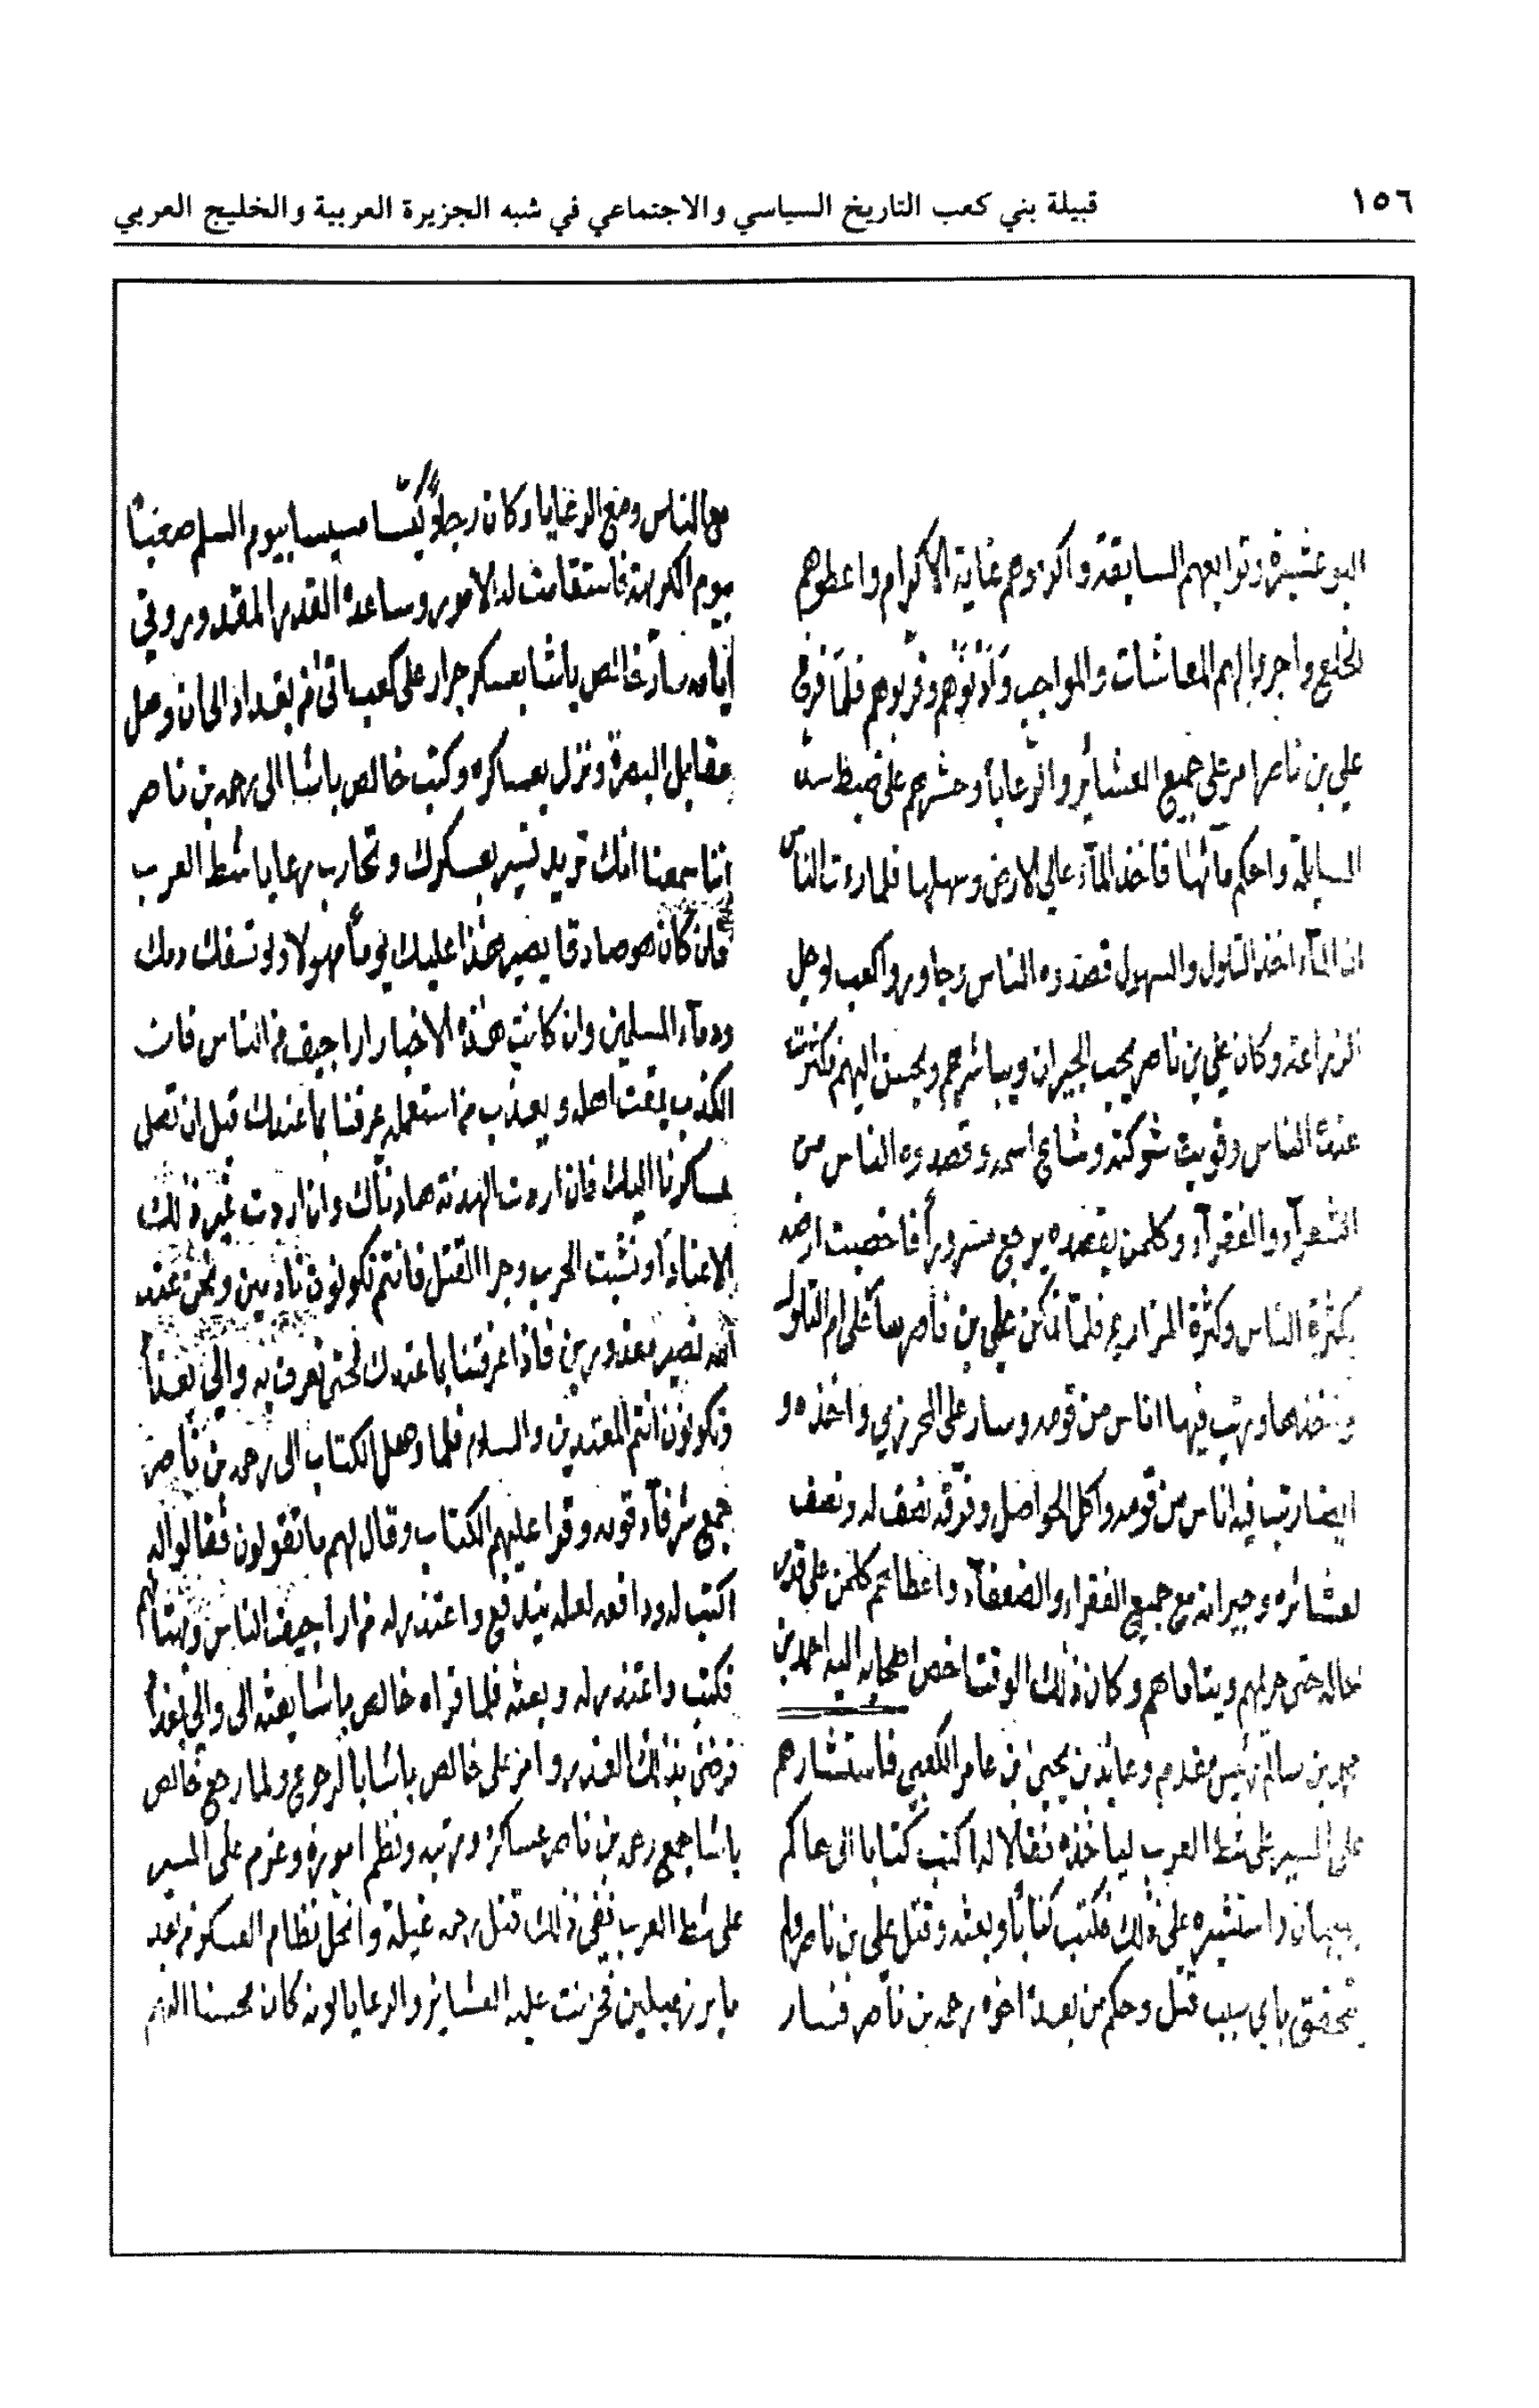 ١٥٦
قبيلة بني كعب التاريخ السياسي والاجتماعي في شبه الجزيرة العربية والخليج العربي
البو عشيرة وتوابعهم السابقة واكرموهم غاية الاكرام واعطوهم
الخلع واجروا اليهم المعاشات والمواجب وقربوهم فلما
علي بن ناصر امر على جميع العشائر والرعايا وحشرهم على ضبط سد
السابلة واحكم فاخذ المآء على الارض وسهلها فلما الناس
ان المآء اخذ التلول والسهول قصدوه الناس وجاوروا كعب لوجل
الزراعة وكان علي بن ناصر يحب الجيران ويباشرهم ويحسن اليهم فكثرت
عنده الناس وقويت شوكته وشاع اسمه وقصدوه الناس من
الشعرآء والفقرآء وكلمن يقصده يرجع مسرورا فاخصبت ارضه
بكثرة الناس وكثرة المزاريع فلما تمكن علي بن ناصر على ام التلول
واخذها ورتب فيها اناس من قومه وسار على المحرزي واخذه و
ايضا رتب فيه اناس من قومه واكل الحواصل وفرقه نصف له ونصف
لعشائره وجيرانه مع جميع الفقراء والضعفآء واعطاهم كلمن على قدر
حاله حتى ويتاماهم وكان ذلك الوقت اخص اصحابه اليه احمد بن
بن سالم رئيس مقدم وعايد بن يحيى بن عامر الكعبي فاستشارهم
على المسير على شط العرب لياخذه فقالا له اكتب كتابا الى حاكم
بهبهان واستشيره على ذلك فكتب كتابا وبعثه وقتل علي بن ناصر ولم
يتحقق باي سبب قتل وحكم من بعده اخوه رحمه بن ناصر فسار
مع الناس ومع الرعايا وكان رجلا سيسا بيوم السلم صعبا
بيوم الكريهة فاستقامت له الامور وساعده القدر المقدور وفي
ايامه سار خالص باشا بعسكر جرار على كعب اتى من بغداد الى ان وصل
مقابل البصرة ونزل بعساكره وكتب خالص باشا الى رحمه بن ناصر
اننا سمعنا انك تريد تسير بعسكرك وتحارب رعايا شط العرب
فان كان هو صادقا يصير هذا عليك يوما مهولا ولو تسفك دمك
ودمآء المسلمين وان كانت هذه الاخبار اراجيف من الناس فان
الكذب يمقت اهله ويعذب من استعمله عرفنا بما عندك قبل ان تصل
عساكرنا اليك فان اردت الهدنة هادناك وان اردت غير ذلك
الاعتادا وتشبت الحرب وجرا القتل فانتم تكونون نادمين ونحن عند
الله نصير معذورين فاذا عرفتنا بما عندك نحن نعرف به والي بغداد
وتكونون انتم المعتدين والسلام فلما وصل الكتاب الى رحمه بن ناصر
جمع شرفآء قومه وقرا عليهم الكتاب وقال لهم ما تقولون فقالوا له
اكتب له ودافعه لعله يندفع واعتذر له من اراجيف الناس وبهتانهم
فكتب واعتذر له وبعثه فلما قراه خالص باشا بعثه الى والي بغداد
فرضى بذلك العذر وامر على خالص باشا بالرجوع ولما رجع خالص
باشا جمع رحمه بن ناصر عساكره ورتبه ونظم اموره وعزم على المسير
على شط العرب ففي ذلك قتل رحمه غيلة وانحل نظام العسكر من بعد
ما برز عبيلين فحزنت عليه العشاير والرعايا لونه كان محسنا اليهم